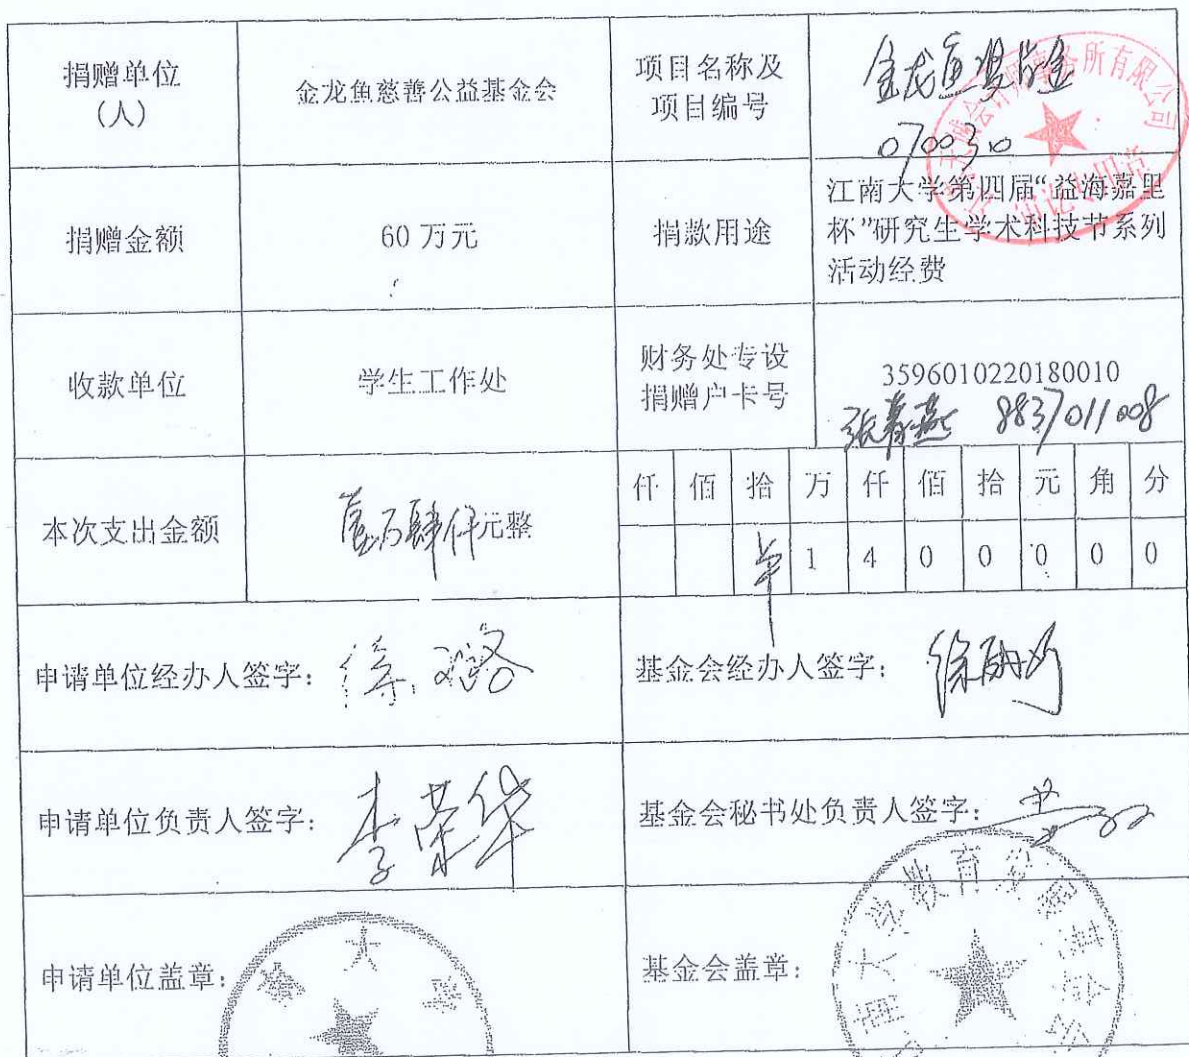 捐赠单位
(人)
金龙鱼慈善公益基金会
项目名称及
项目编号
金龙鱼奖学金
070030
捐赠金额
60 万元
捐款用途
江南大学第四届“益海嘉里
杯”研究生学术科技节系列
活动经费
收款单位
学生工作处
财务处专设
捐赠户卡号
3596010220180010
张春燕 8837011008
本次支出金额
壹万肆仟元整
仟 佰 拾 万 仟 佰 拾 元 角 分
1 4 0 0 0 0 0
申请单位经办人签字：
徐璐
基金会经办人签字：
申请单位负责人签字：
李荣华
基金会秘书处负责人签字：
申请单位盖章：
基金会盖章：
大学教育发